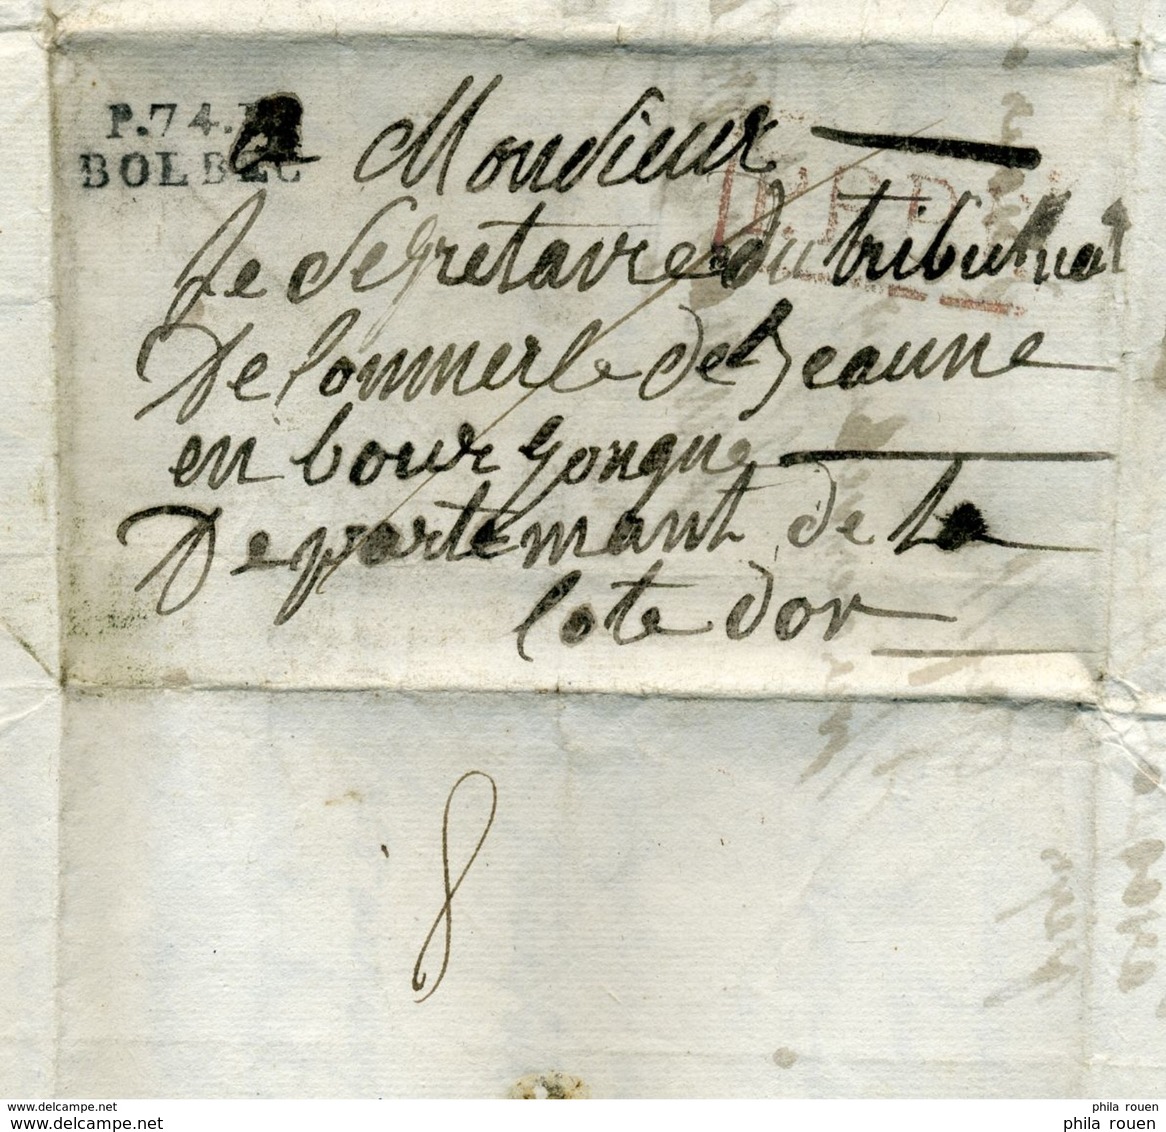 P.74.P
BOLBEC
a Monsieur
Le Segretaire du tribunal
De Commerce de Beaune
en bourgongne
Departemant de la
Cote dor
P.P.P.P.
8
phila rouen
phila rouen
phila rouen
phila rouen